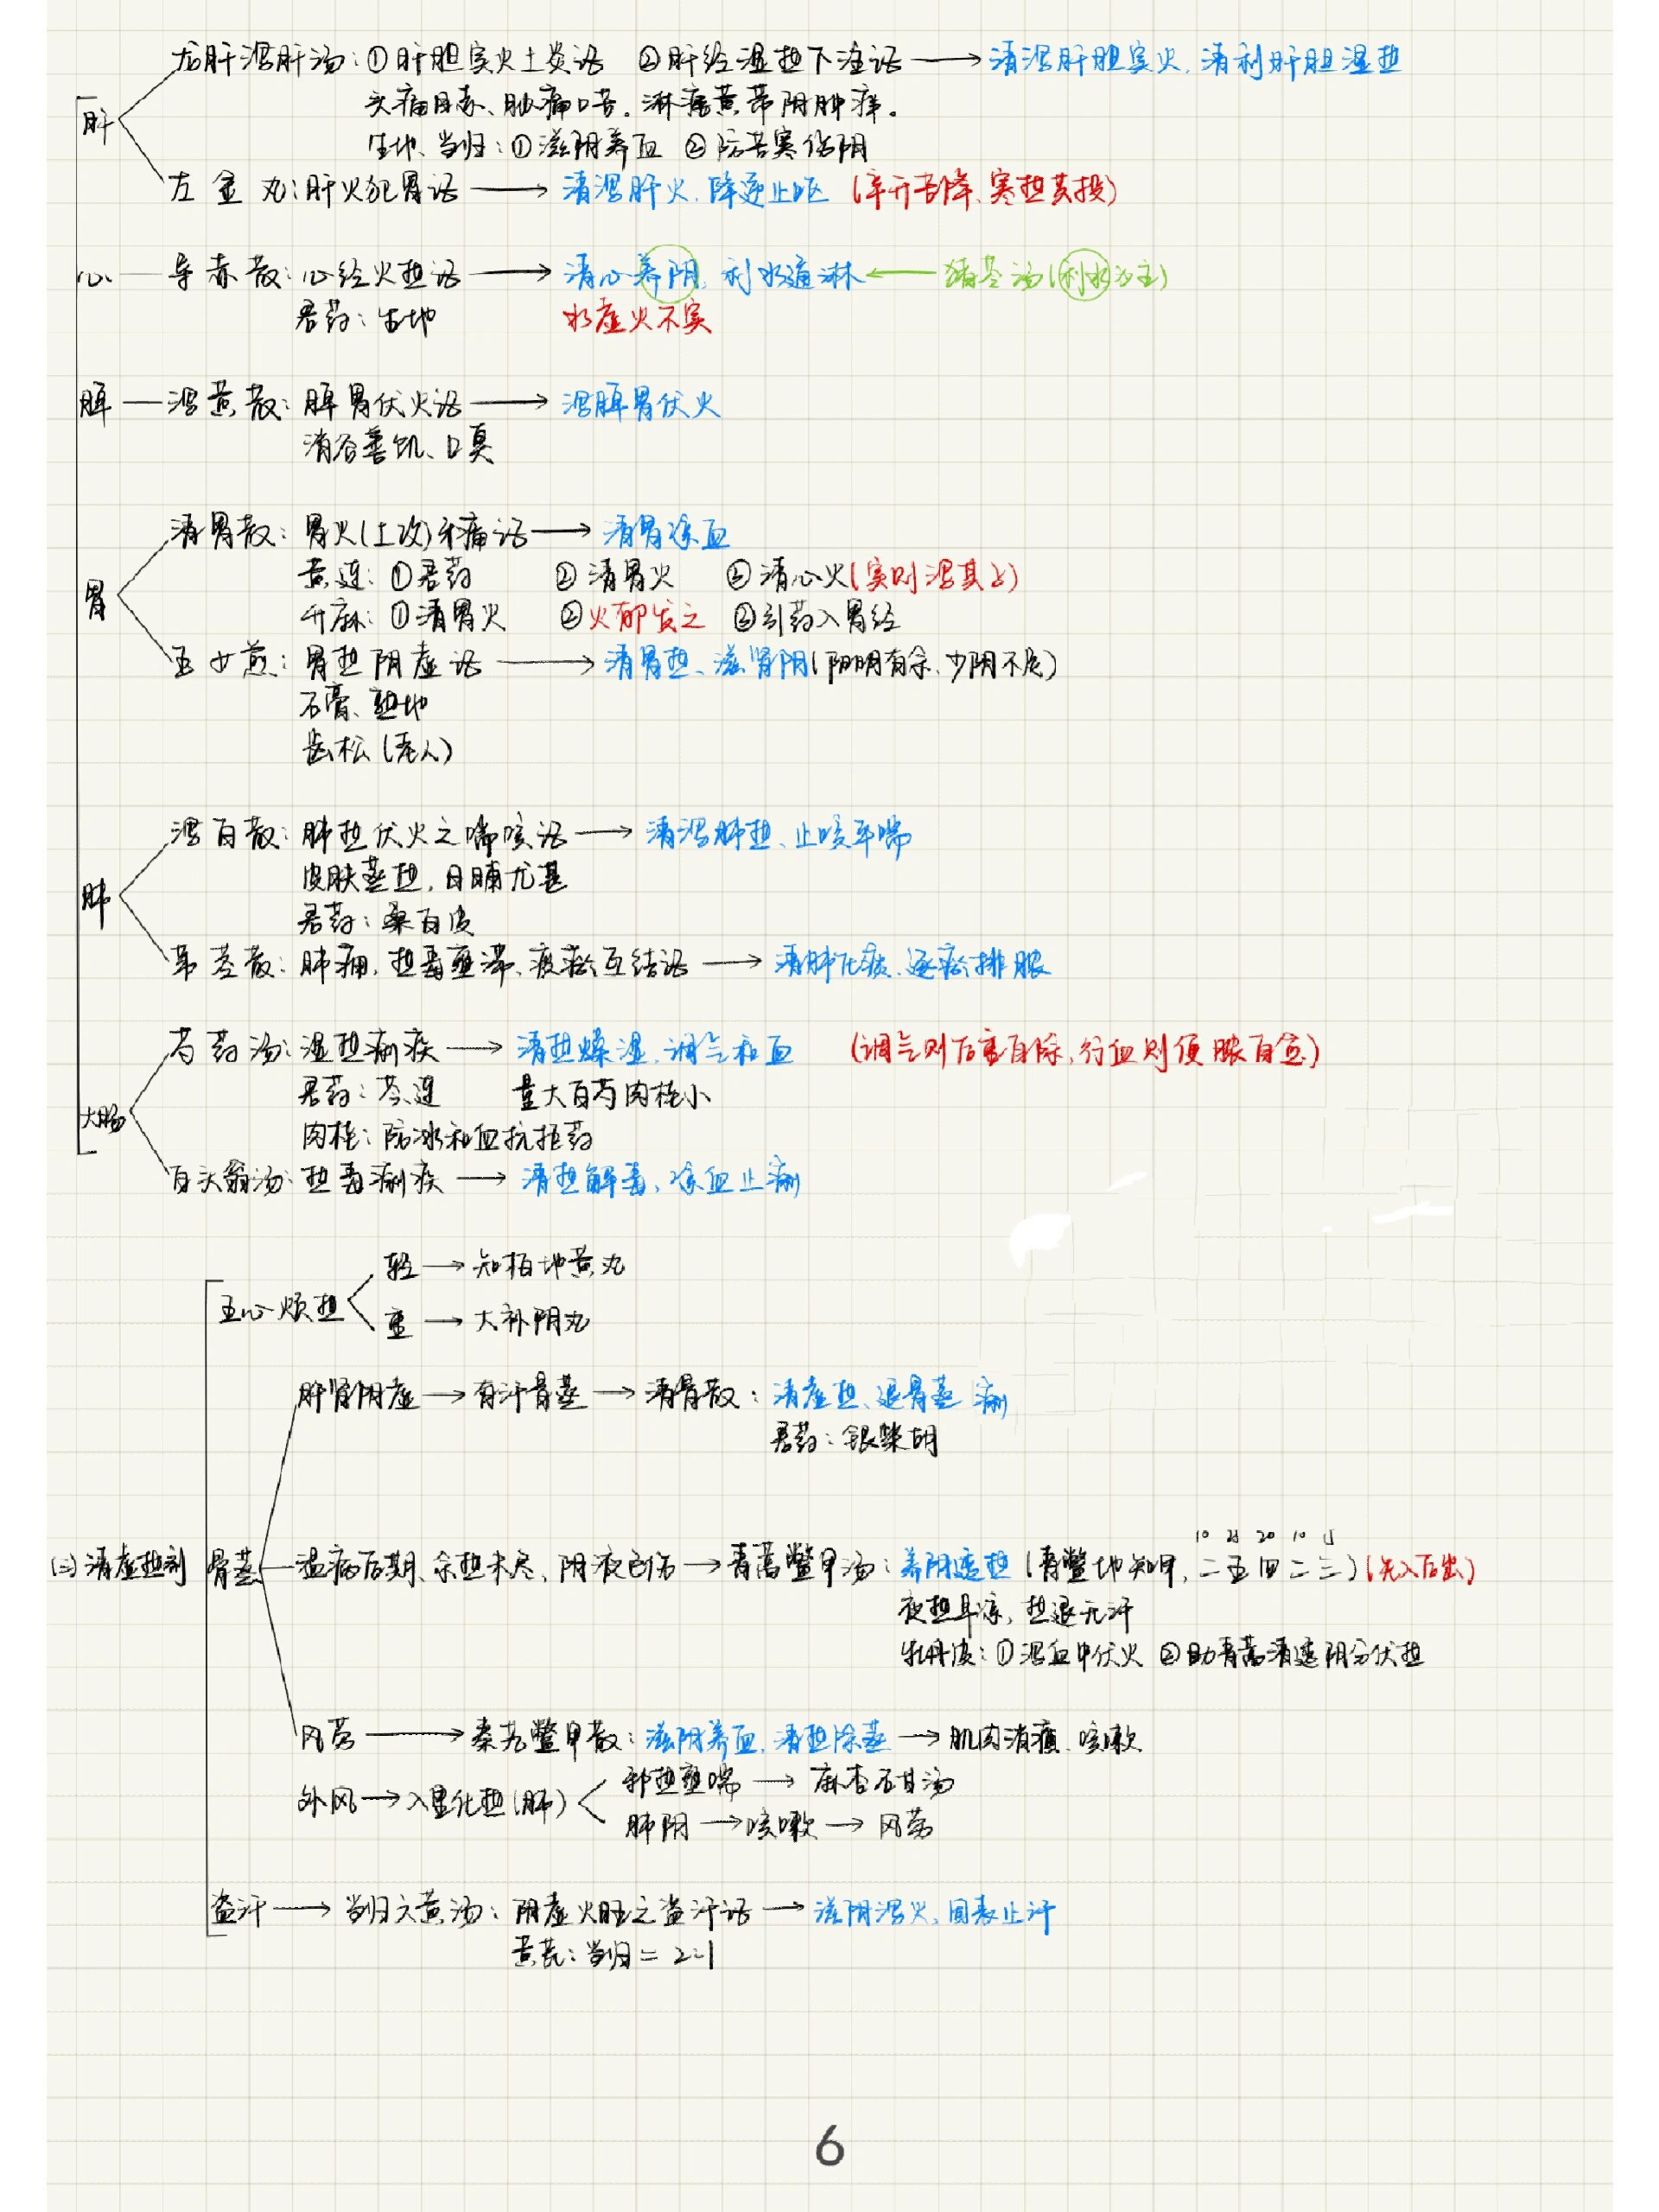 龙肝泻肝汤:①肝胆实火上炎证 ②肝经湿热下注证 → 清泻肝胆实火,清利肝胆湿热
肝
头痛目赤、胁痛口苦。淋浊黄带阴肿痒。
生地、当归:①滋阴养血 ②防苦寒伤阴
左金丸:肝火犯胃证 → 清泻肝火,降逆止呕 (辛开苦降、寒热共投)
心 — 导赤散:心经火热证 → 清心养阴,利水通淋 ← 猪苓汤(利水为主)
君药:生地 水虚火不实
脾 — 泻黄散:脾胃伏火证 → 泻脾胃伏火
消谷善饥、口臭
清胃散:胃火(上攻)牙痛证 → 清胃凉血
黄连:①君药 ②清胃火 ③清心火(实则泻其子)
胃
升麻:①清胃火 ②火郁发之 ③引药入胃经
玉女煎:胃热阴虚证 → 清胃热、滋肾阴(阳明有余、少阴不足)
石膏、熟地
齿松(老人)
泻白散:肺热伏火之喘咳证 → 清泻肺热、止咳平喘
皮肤蒸热,日晡尤甚
肺
君药:桑白皮
苇茎散:肺痈,热毒壅滞、痰瘀互结证 → 清肺化痰、逐瘀排脓
芍药汤:湿热痢疾 → 清热燥湿、调气和血 (调气则后重自除,行血则便脓自愈)
君药:芩连 量大白芍肉桂小
大肠
肉桂:防冰和血抗拒药
白头翁汤:热毒痢疾 → 清热解毒,凉血止痢
轻 → 知柏地黄丸
五心烦热
重 → 大补阴丸
肝肾阴虚 → 有汗骨蒸 → 清骨散:清虚热、退骨蒸 痢
君药:银柴胡
10 25 20 10 15
(三)清虚热剂 骨蒸 — 温病后期、余热未尽、阴液已伤 → 青蒿鳖甲汤:养阴透热(青鳖地知甲,二五四二三)(先入后出)
夜热早凉,热退无汗
牡丹皮:①泻血中伏火 ②助青蒿清透阴分伏热
风劳 → 秦艽鳖甲散:滋阴养血,清热除蒸 → 肌肉消瘦、咳嗽
邪热壅喘 → 麻杏石甘汤
外风 → 入里化热(肺)
肺阴 → 咳嗽 → 风劳
盗汗 → 当归六黄汤:阴虚火旺之盗汗证 → 滋阴泻火,固表止汗
黄芪:当归=2:1
6